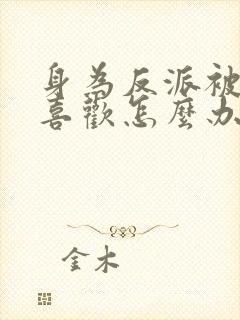 身為反派被
喜歡怎麼办
金木